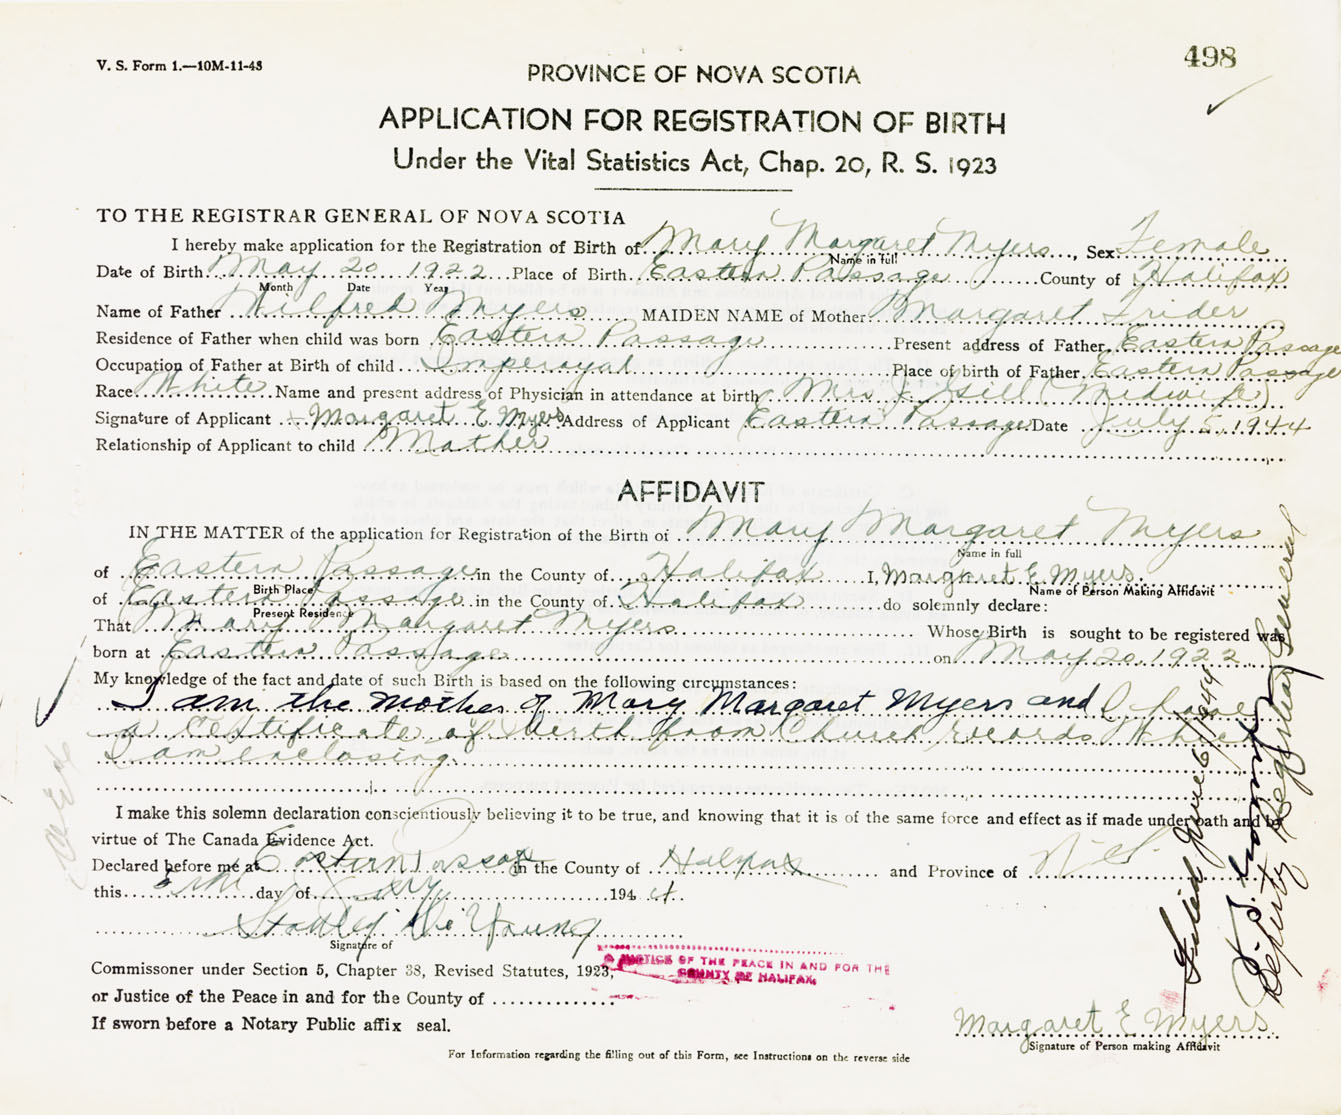 V. S. Form 1.—10M-11-43
498
PROVINCE OF NOVA SCOTIA
APPLICATION FOR REGISTRATION OF BIRTH
Under the Vital Statistics Act, Chap. 20, R. S. 1923
TO THE REGISTRAR GENERAL OF NOVA SCOTIA
I hereby make application for the Registration of Birth of Mary Margaret Myers, Sex Female
Name in full
Date of Birth May 20 1922 Place of Birth Eastern Passage County of Halifax
Month Date Year
Name of Father Wilfred Myers MAIDEN NAME of Mother Margaret Trider
Residence of Father when child was born Eastern Passage Present address of Father Eastern Passage
Occupation of Father at Birth of child Imperoyal Place of birth of Father Eastern Passage
Race White Name and present address of Physician in attendance at birth Mrs Gill (Midwife)
Signature of Applicant Margaret E Myers Address of Applicant Eastern Passage Date July 5, 1944
Relationship of Applicant to child Mother
AFFIDAVIT
IN THE MATTER of the application for Registration of the Birth of Mary Margaret Myers
Name in full
of Eastern Passage in the County of Halifax I, Margaret E. Myers
Birth Place Name of Person Making Affidavit
of Eastern Passage in the County of Halifax do solemnly declare:
Present Residence
That Mary Margaret Myers Whose Birth is sought to be registered was
born at Eastern Passage on May 20, 1922
My knowledge of the fact and date of such Birth is based on the following circumstances:
I am the mother of Mary Margaret Myers and I have
a Certificate of Birth from Church records which
I am enclosing.
I make this solemn declaration conscientiously believing it to be true, and knowing that it is of the same force and effect as if made under oath and by
virtue of The Canada Evidence Act.
Declared before me at Eastern Passage in the County of Halifax and Province of N.S.
this day of July 1944.
Stanley De Young
Signature of
Commissoner under Section 5, Chapter 38, Revised Statutes, 1923,
A JUSTICE OF THE PEACE IN AND FOR THE
COUNTY OF HALIFAX
or Justice of the Peace in and for the County of
If sworn before a Notary Public affix seal.
Margaret E Myers
Signature of Person making Affidavit
For Information regarding the filling out of this Form, see Instructions on the reverse side
Filed June 6/1944
Deputy Registrar General